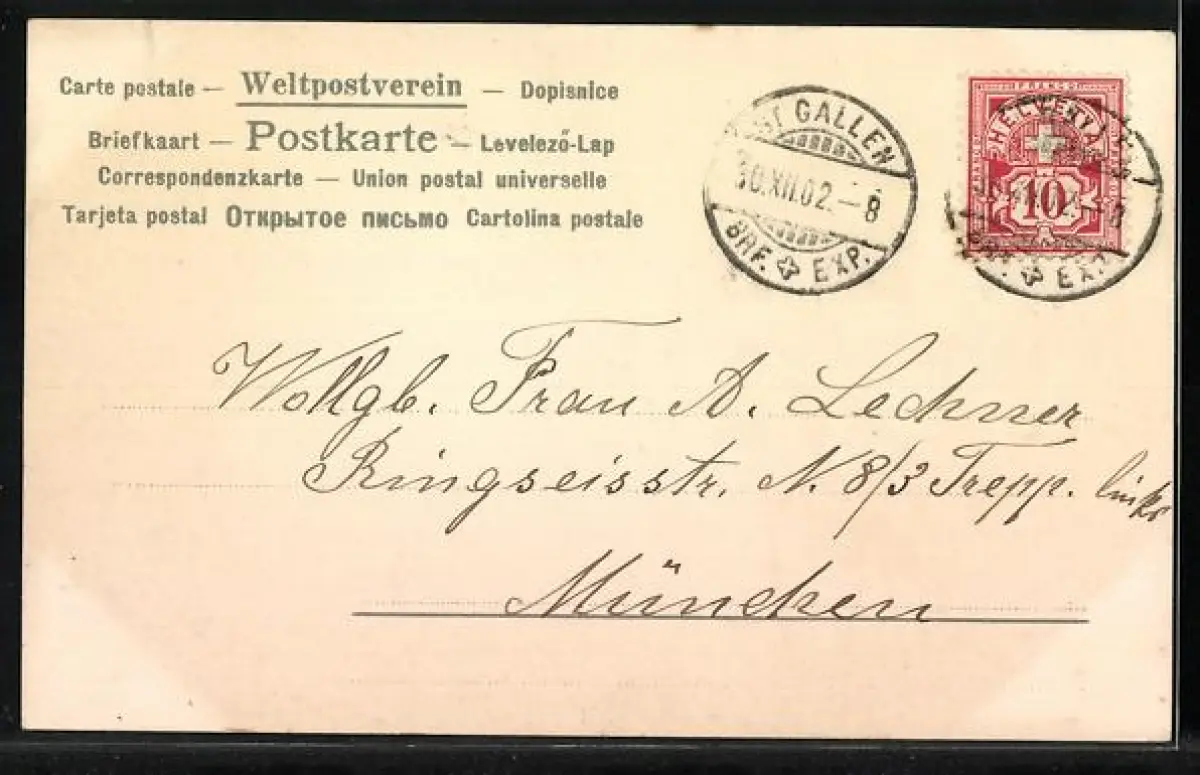 Carte postale — Weltpostverein — Dopisnice
Briefkaart — Postkarte — Levelező-Lap
Correspondenzkarte — Union postal universelle
Tarjeta postal Открытое письмо Cartolina postale
GALLEN
30.XII.02.-8
BRF. EXP.
FRANCO
HELVETIA
10
EXP.
Wollgb. Frau A. Lechner
Ringseisstr. N. 8/3 Trepp. links
München